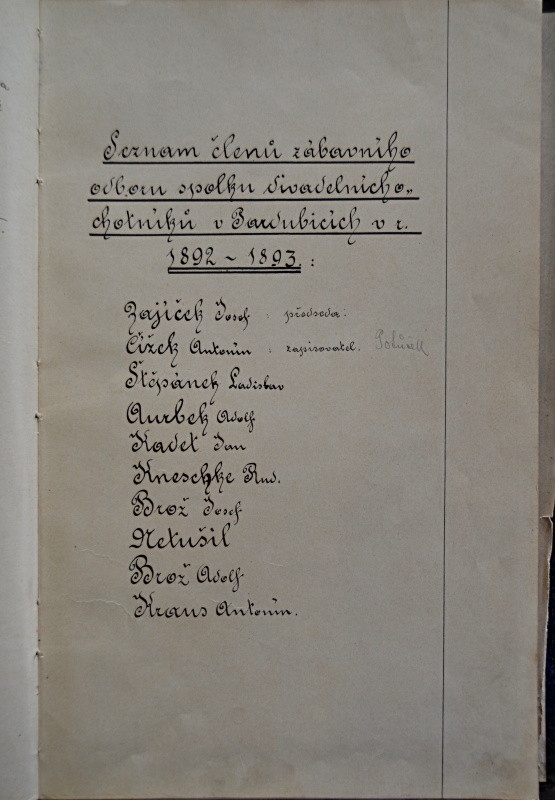 Seznam členů zábavního
odboru spolku divadelních
chotníků v Pardubicích v r.
1892 ~ 1893. :
Zajíček Josef : předseda :
Čížek Antonín : zapisovatel.
Štěpánek Ladislav
Aurbek Adolf
Kadet Jan
Kneschke Rud.
Brož Josef
Netušil
Brož Adolf
Kraus Antonín.